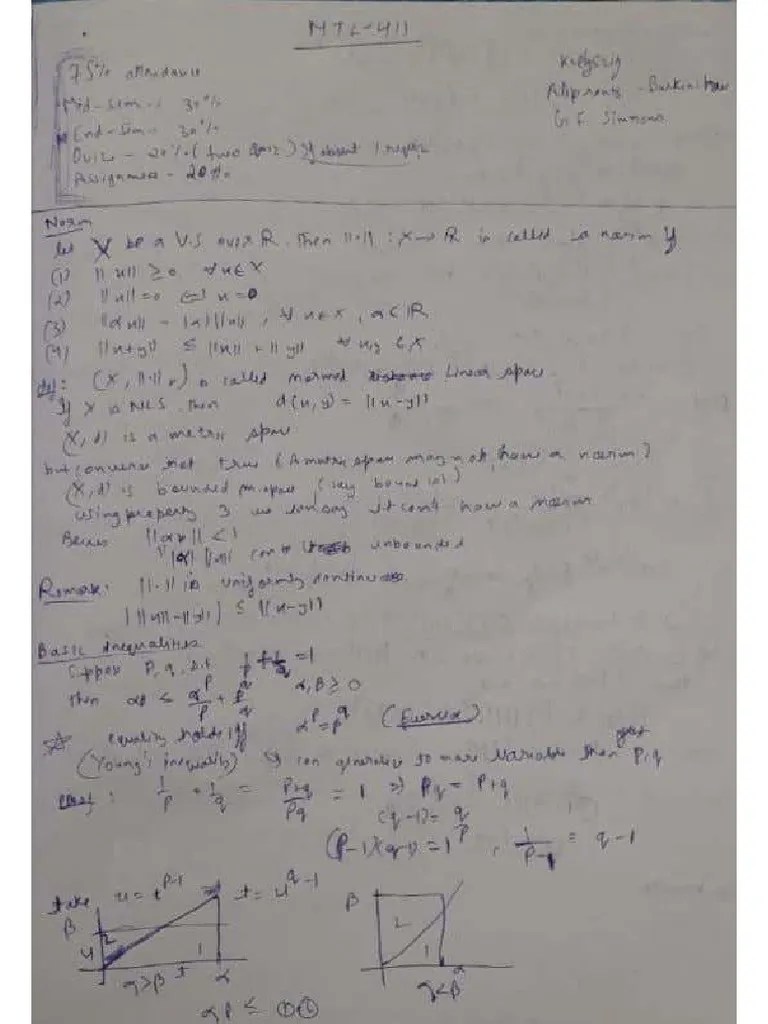 MTL-411
75% attendance
Mid-Sem - 30%
End-Sem - 30%
Quiz - 20% (two quiz) If absent
Assignment - 20%
Kreyszig
Aliprantis - Burkinshaw
G.F. Simmons
Norm
let X be a V.S over R. Then ||.|| : X → R is called a norm if
(1) ||x|| ≥ 0 ∀ x ∈ X
(2) ||x|| = 0 ⟺ x = 0
(3) ||αx|| = |α| ||x||, ∀ x ∈ X, α ∈ R
(4) ||x+y|| ≤ ||x|| + ||y|| ∀ x,y ∈ X
def: (X, ||.||) is called normed Linear space.
If X is NLS. then d(x,y) = ||x-y||
(X, d) is a metric space
but converse not true (A metric space may not have a norm)
(X,d) is bounded m. space
using property 3 we can say it can't have a norm
||αx|| < 1
|α| ||x|| unbounded
Remark: ||.|| is uniformly continuous
| ||x|| - ||y|| | ≤ ||x-y||
Basic inequalities
Suppose P, q, s.t 1/p + 1/q = 1
then αβ ≤ α^p/p + β^q/q α, β ≥ 0
equality holds iff α^p = β^q (Exercise)
(Young's inequality) can generalize to more variable then p, q
Proof: 1/p + 1/q = p+q/pq = 1 ⇒ pq = p+q
(P-1)(q-1) = 1, 1/p-1 = q-1
take u = t^p-1 t = u^q-1
β
u
2
1
t
α
α>β
β
2
1
α
α<β
αβ ≤ ① ②